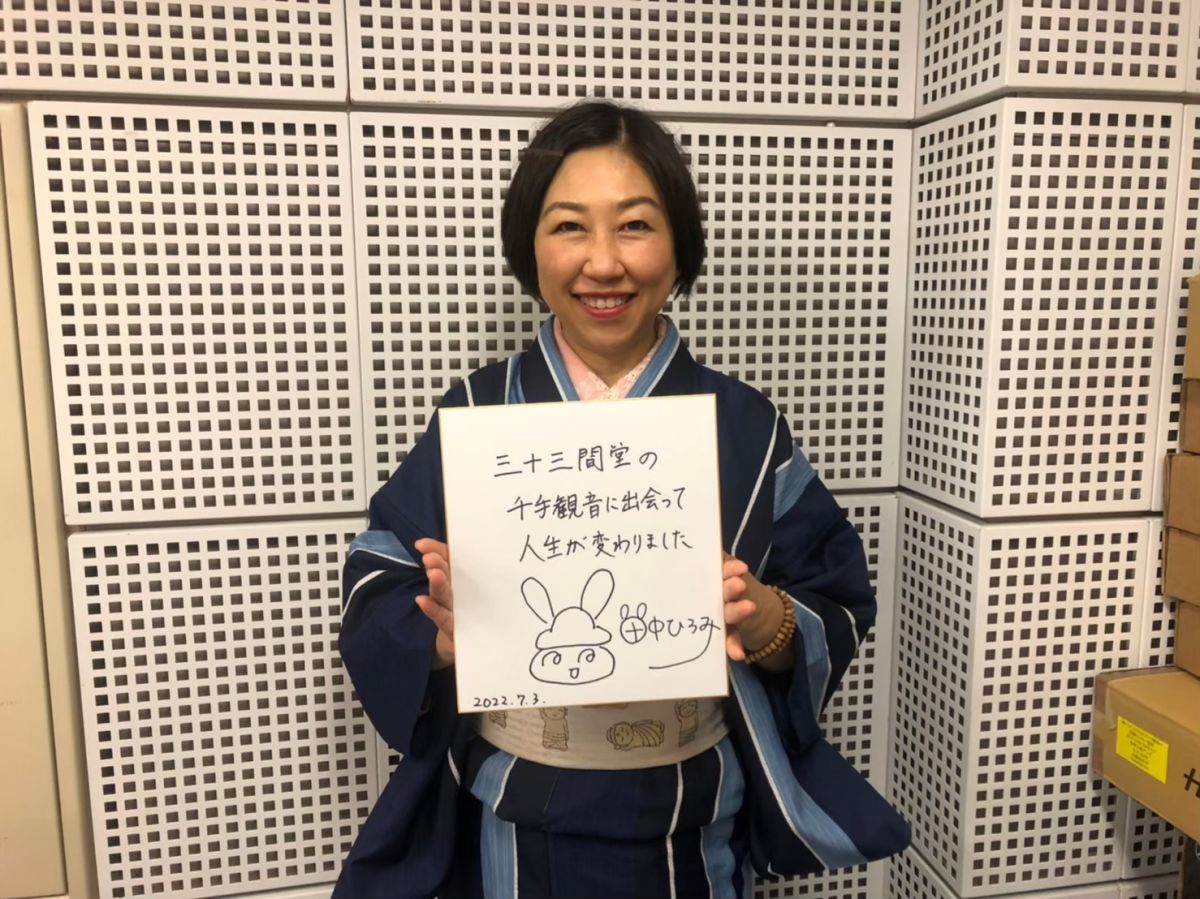 三十三間堂の
千手観音に出会って
人生が変わりました
田中ひろみ
2022.7.3.